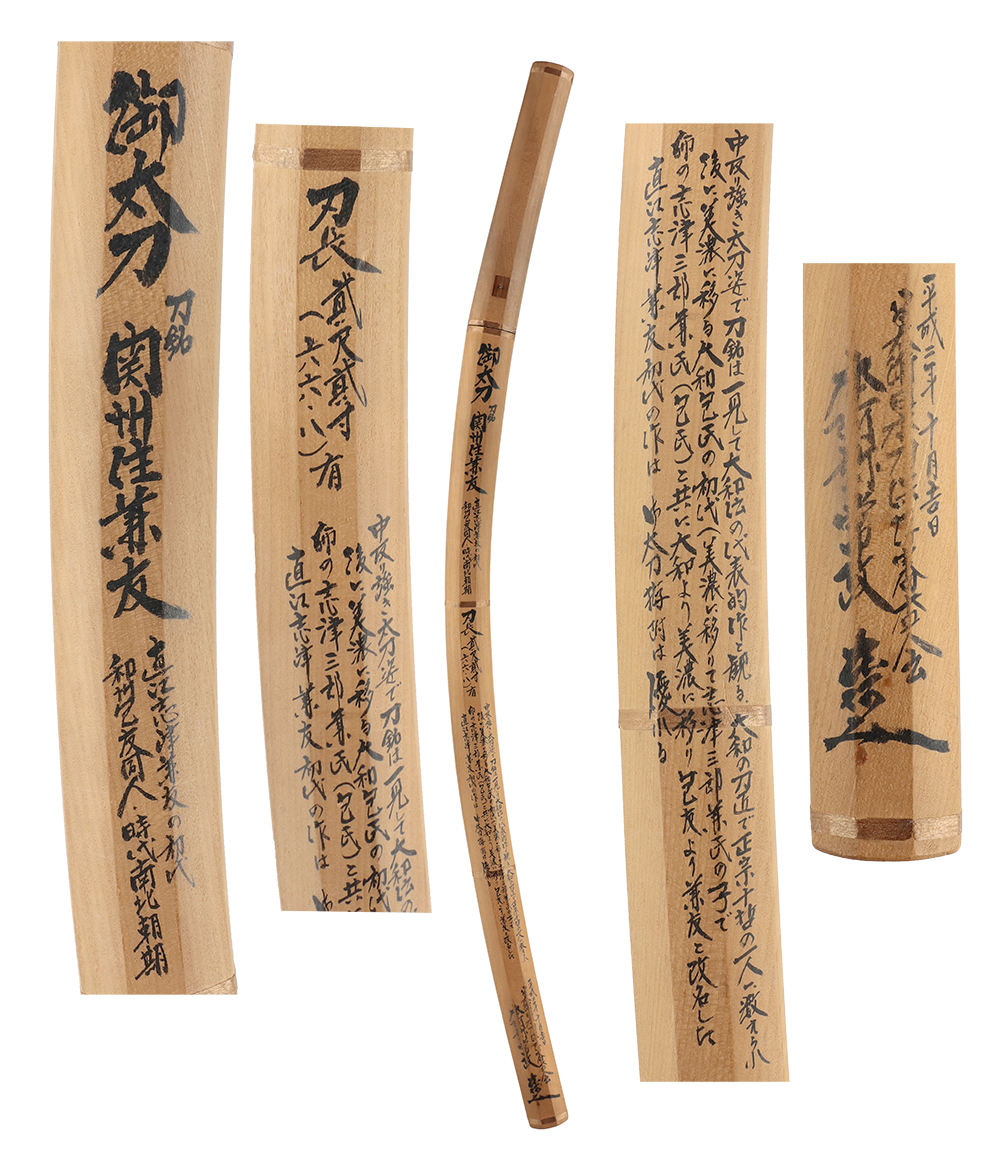 御太刀
刀銘
関州住兼友
直江志津兼友の初代
和州包友同人時代南北朝期
刃長
貮尺貮寸
(六六.八)有
中反り強き太刀姿で刀銘は一見して大和伝の
後に美濃に移る大和包氏の初代
師の志津三郎兼氏(包氏)と共
直江志津兼友初代の作は
中反り強き太刀姿で刀銘は一見して大和伝の代表的作と観る.大和の刀匠で正宗十哲の一人に数えられ
後に美濃に移る大和包氏の初代(美濃に移りて志津三郎兼氏の子で
師の志津三郎兼氏(包氏)と共に大和より美濃に移り包友より兼友と改名した
直江志津兼友初代の作は太刀拵附は優れる
平成二年十月吉日